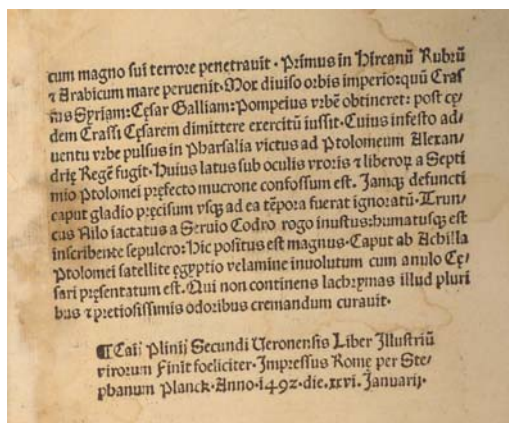 cum magno sui terrore penetrauit · Primus in Hircanū Rubrū
⁊ Arabicum mare peruenit·Mox diuiso orbis imperio:quū Craſ
ſus Syriam:Cęſar Galliam:Pompeius vrbē obtineret: poſt cę⸗
dem Craſſi Cęſarem dimittere exercitū iuſſit·Cuius infeſto ad⸗
uentu vrbe pulſus in Pharſalia victus ad Ptolomeum Alexan⸗
drię Regē fugit·Huius latus ſub oculis vxoris ⁊ liberoꝝ a Septi
mio Ptolomei pręfecto mucrone confoſſum eſt. Jamqꝫ defuncti
caput gladio pręciſum vſqꝫ ad ea tēpora fuerat ignoratū·Trun⸗
cus Nilo iactatus a Seruio Codro rogo inuſtus:humatuſqꝫ eſt
inſcribente ſepulcro:Hic poſitus eſt magnus·Caput ab Achilla
Ptolomei ſatellite ęgyptio velamine inuolutum cum anulo Cę⸗
ſari pręſentatum eſt. Qui non continens lachrymas illud pluri
bus ⁊ pretioſiſſimis odoribus cremandum curauit·
¶Caij Plinij Secundi Ueronenſis Liber Jlluſtriū
virorum Finit foeliciter·Jmpreſſus Romę per Ste⸗
phanum Planck·Anno·1492·die·xxvi·Januarij·